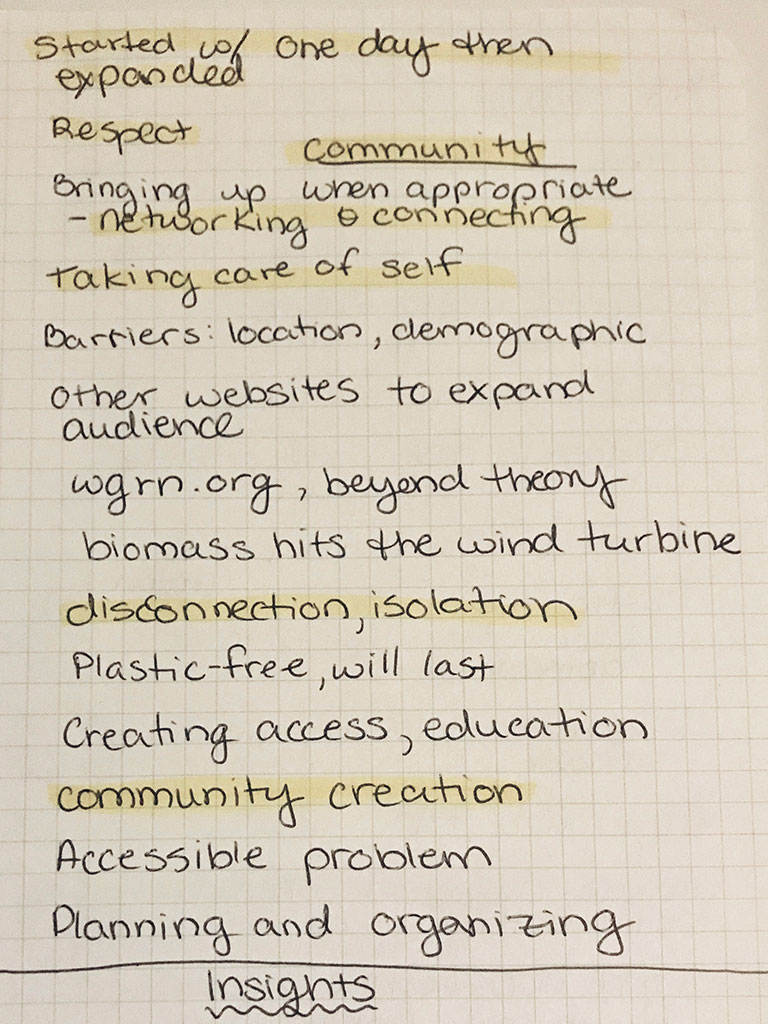 Started w/ one day then
expanded
Respect
community
Bringing up when appropriate
- networking & connecting
Taking care of self
Barriers: location, demographic
Other websites to expand
audience
wgrn.org, beyond theory
biomass hits the wind turbine
disconnection, isolation
Plastic-free, will last
Creating access, education
community creation
Accessible problem
Planning and organizing
Insights